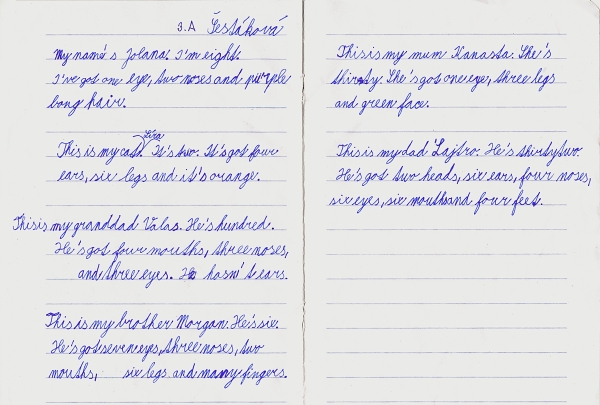 3.A Šestáková
My name's Jolana. I'm eight.
I've got one eye, two noses and purple
long hair.
Líza
This is my cat. It's two. It's got four
ears, six legs and it's orange.
This is my granddad Valas. He's hundred.
He's got four mouths, three noses,
and three eyes. He hasn't ears.
This is my brother Morgan. He's six.
He's got seven eyes, three noses, two
mouths, six legs and many fingers.
This is my mum Kanasta. She's
thirsty. She's got one eye, three legs
and green face.
This is my dad Lajtro. He's thirty two.
He's got two heads, six ears, four noses,
six eyes, six mouths and four feet.